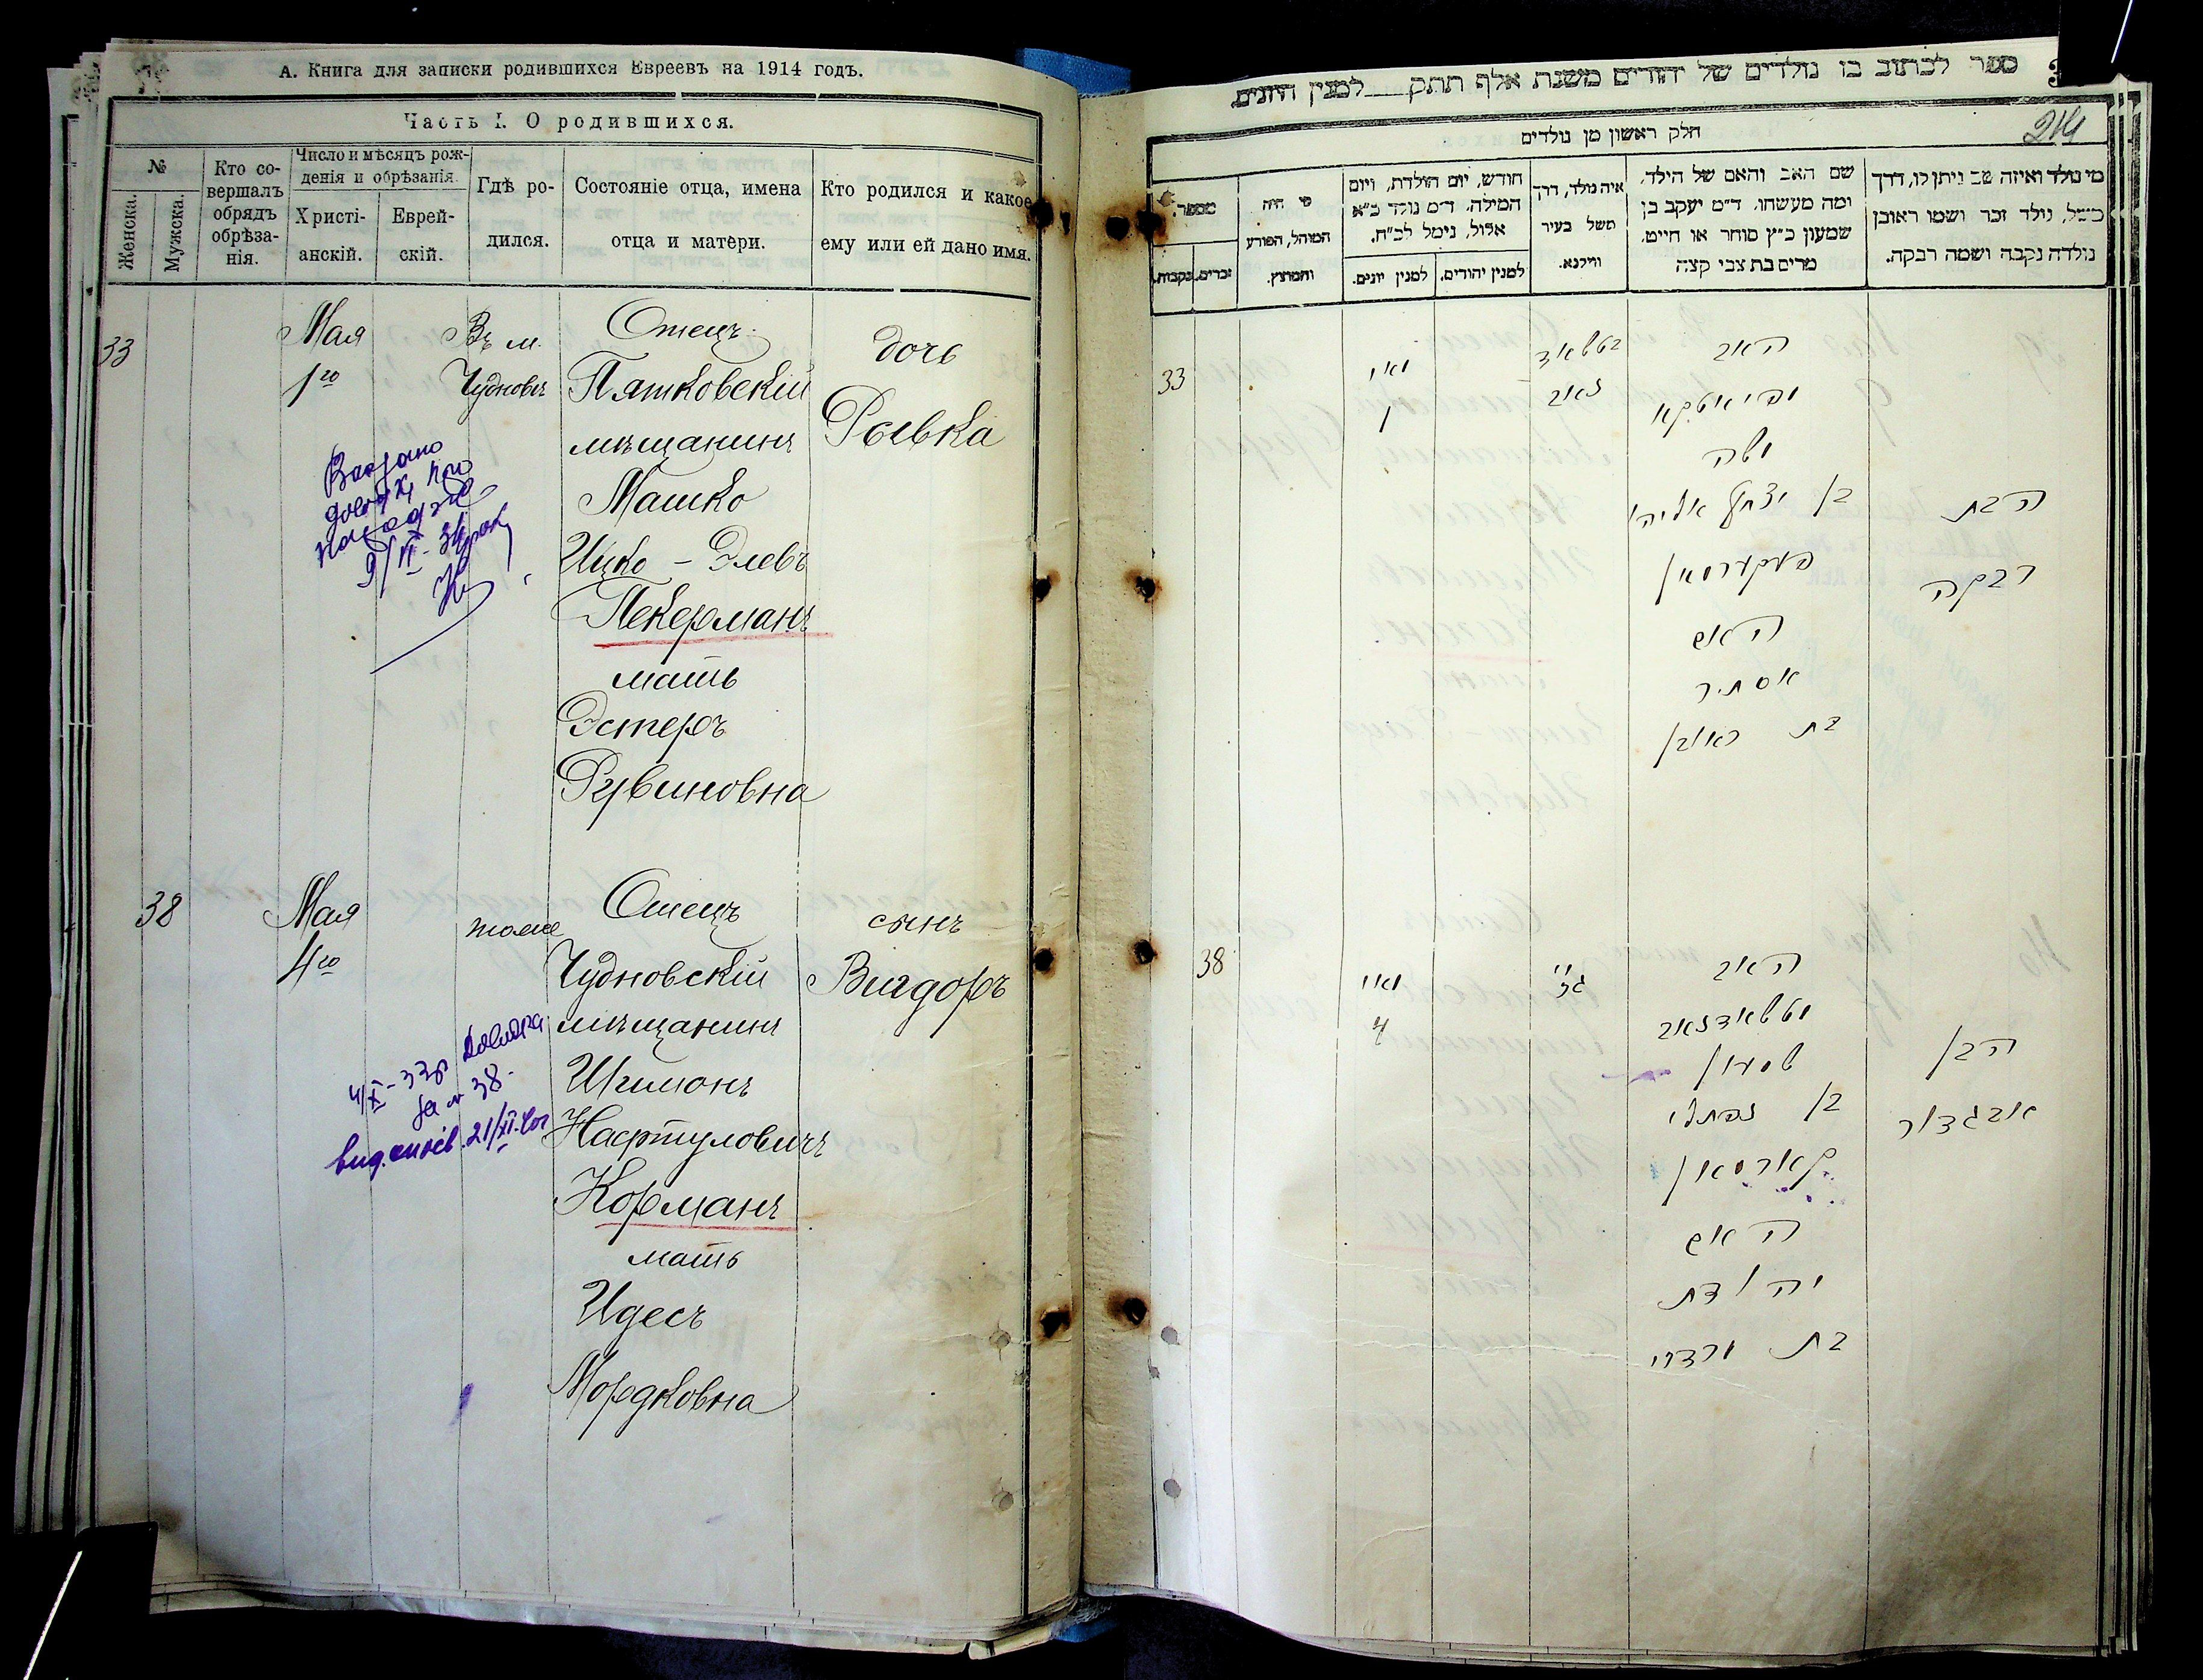 А. Книга для записки родившихся Евреевъ на 1914 годъ.
Часть I. О родившихся.
№
Женска.
Мужска.
Кто со-
вершалъ
обрядъ
обрѣза-
нія.
Число и мѣсяцъ рож-
денія и обрѣзанія.
Христі-
анскій.
Еврей-
скій.
Гдѣ ро-
дился.
Состояніе отца, имена
отца и матери.
Кто родился и какое
ему или ей дано имя.
33
Мая
1го
Въ м.
Чудновъ
Отецъ
Пятковскій
мѣщанинъ
Машко
Ицко - Элевъ
Пекерманъ
мать
Эстеръ
Рувиновна
дочь
Рывка
9/II - 34
38
Мая
4го
тоже
Отецъ
Чудновскій
мѣщанинъ
Шимонъ
Нафтуловичъ
Корманъ
мать
Идесъ
Мордковна
сынъ
Вигдоръ
4/X - 33р Довідка
за № 38 -
ספר לכתוב בו נולדים של יהודים משנת אלף תתק למנין היונים
214
חלק ראשון מן נולדים
מספר.
נקבות.
זכרים.
מי היה
המוהל, הפורע
והמוצץ.
חודש, יום הולדת, ויום
המילה. ד״מ נולד כ״א
אלול, נימל לכ״ח.
למנין יונים.
למנין יהודים.
איה נולד, דרך
משל בעיר
ווילנא.
שם האב והאם של הילד,
ומה מעשהו. ד״מ יעקב בן
שמעון כ״ץ סוחר או חייט.
מרים בת צבי קצה
מי נולד ואיזה שם ניתן לו, דרך
משל, נולד זכר ושמו ראובן
נולדה נקבה ושמה רבקה.
33
מאי
1
האב
משה
בן יצחק אליהו
פעקערמאן
האם
אסתר
בת ראובן
הבת
רבקה
38
מאי
4
האב
שמעון
בן נפתלי
קארמאן
האם
יהודת
בת מרדכי
הבן
אביגדור